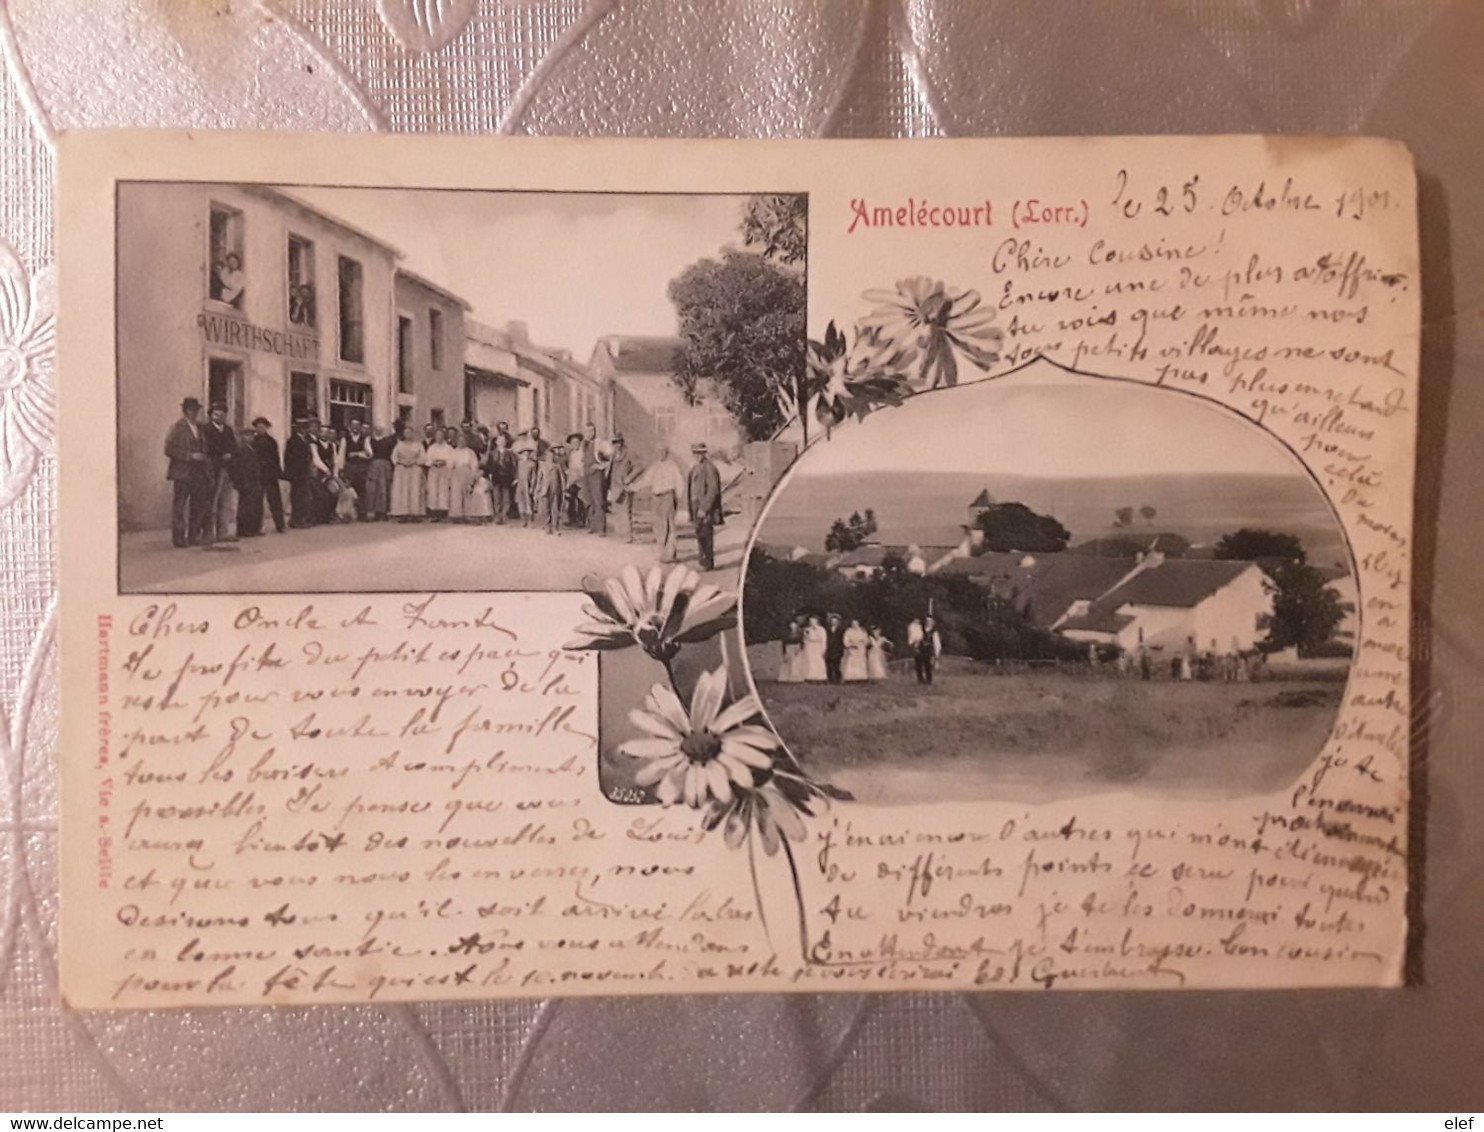 Amelécourt (Lorr.)
le 25 Octobre 1901.
Chère Cousine!
Encore une de plus a t'offrir,
tu vois que même nos
petits villages ne sont
pas plus en retard
qu'ailleurs
pour
cela
en
a
une
autre
je te
l'enverrai
prochainement
j'en ai encore d'autres qui m'ont été envoyées
de différents points ce sera pour quand
tu viendras je te les donnerai toutes
En attendant je t'embrasse. Ton cousin
WIRTHSCHAFT
Chers Oncle et Tante
Je profite du petit espace qui
reste pour vous envoyer de la
part de toute la famille
tous les baisers et compliments
possibles. Je pense que vous
aurez bientôt des nouvelles de Louis
et que vous nous les enverrez, nous
desirons tous qu'il soit arrivé là bas
en bonne santée. Nous vous attendons
pour la fête qui est le 10 novemb.
Hartmann frères, Vic a. Seille
elef
delcampe.net